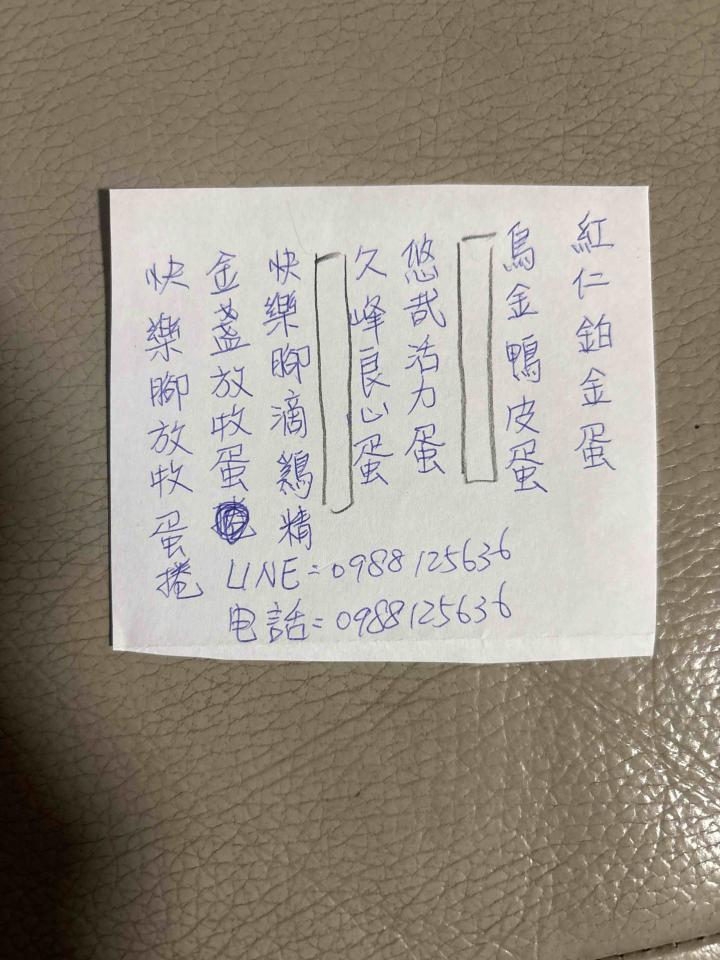 紅仁鉑金蛋
烏金鴨皮蛋
悠哉活力蛋
久峰良心蛋
快樂腳滴鷄精
金盞放牧蛋
快樂腳放牧蛋捲
LINE=0988125636
电話=0988125636